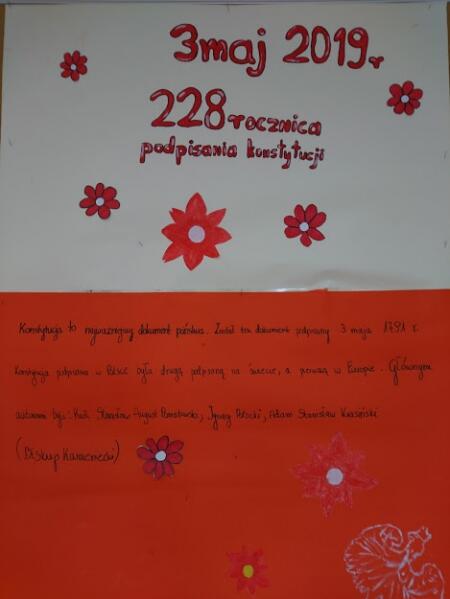 3maj 2019r
228rocznica
podpisania konstytucji
Konstytucja to najważniejszy dokument państwa. Został ten dokument podpisany 3 maja 1791 r.
Konstytucja podpisana w Polsce była drugą podpisaną na świecie, a pierwszą w Europie. Głównymi
autorami byli: Król Stanisław August Poniatowski, Ignacy Potocki, Adam Stanisław Krasiński
(Biskup Kamieniecki)